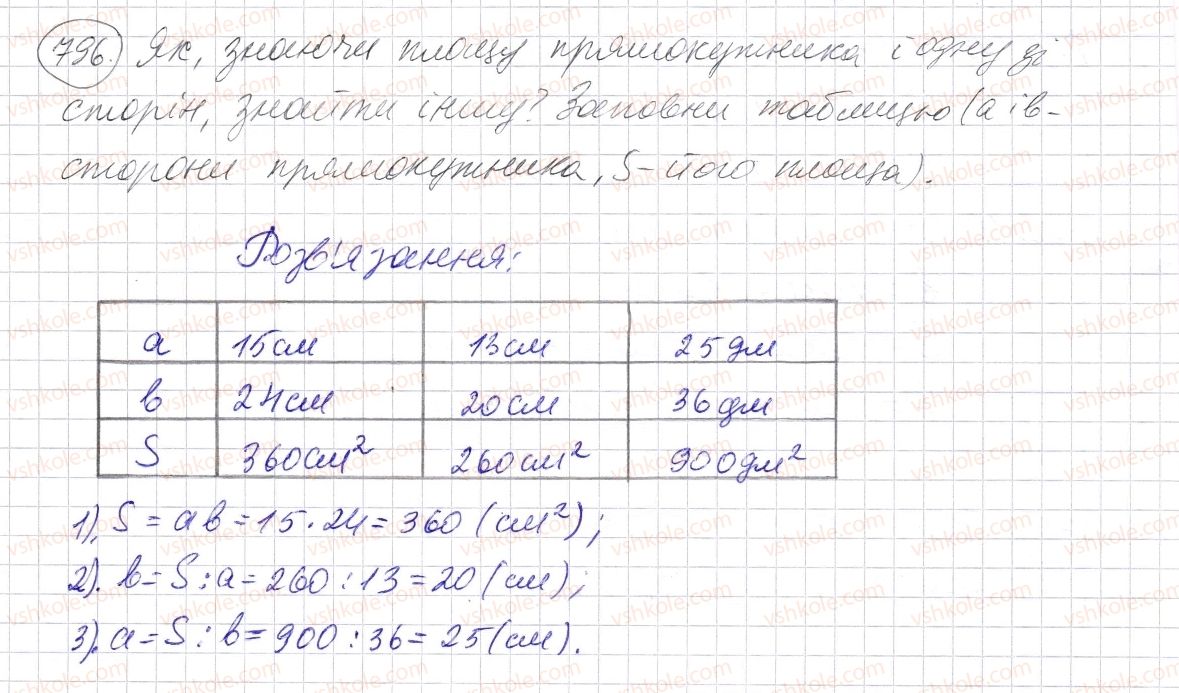 796. Як, знаючи площу прямокутника і одну зі
сторін, знайти іншу? Заповни таблицю (a і b-
сторони прямокутника, S-його площа).
Розв'язання:
a 15см 13см 25дм
b 24см 20см 36дм
S 360см² 260см² 900дм²
1). S = ab = 15·24 = 360 (см²);
2). b = S : a = 260 : 13 = 20 (см);
3). a = S : b = 900 : 36 = 25 (см).